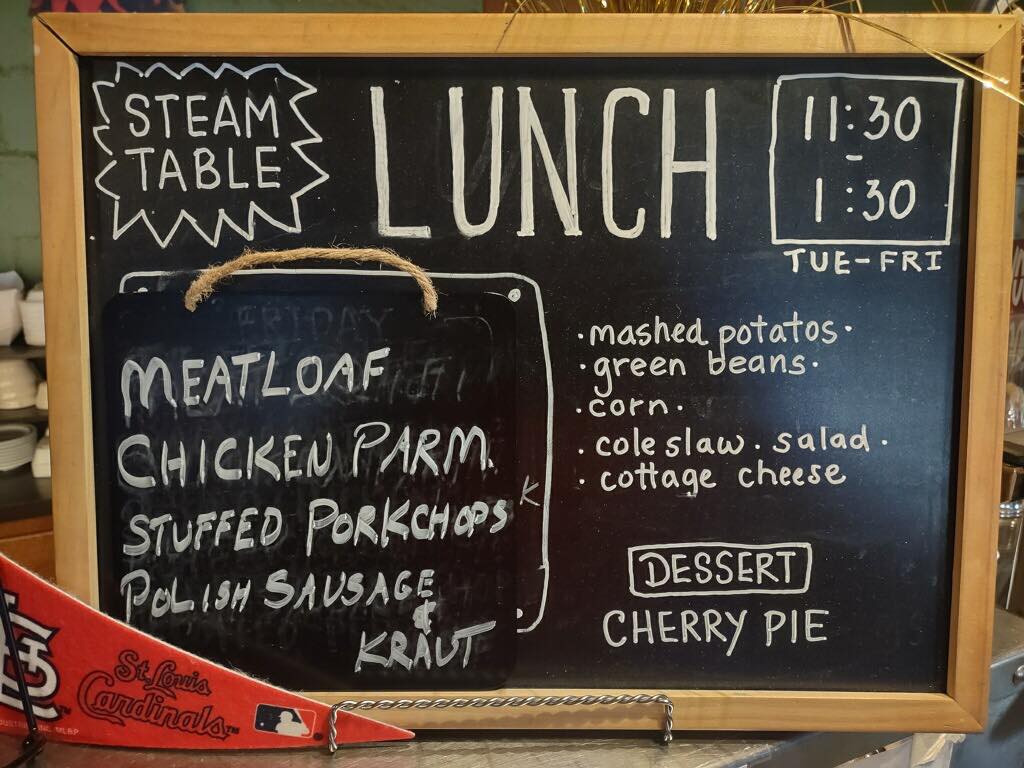 STEAM
TABLE
LUNCH
11:30
-
1:30
TUE-FRI
FRIDAY
MEATLOAF
CHICKEN PARM.
STUFFED PORKCHOPS
K
POLISH SAUSAGE
&
KRAUT
·mashed potatos·
·green beans·
·corn·
·cole slaw·salad·
·cottage cheese
DESSERT
CHERRY PIE
St. Louis
Cardinals™